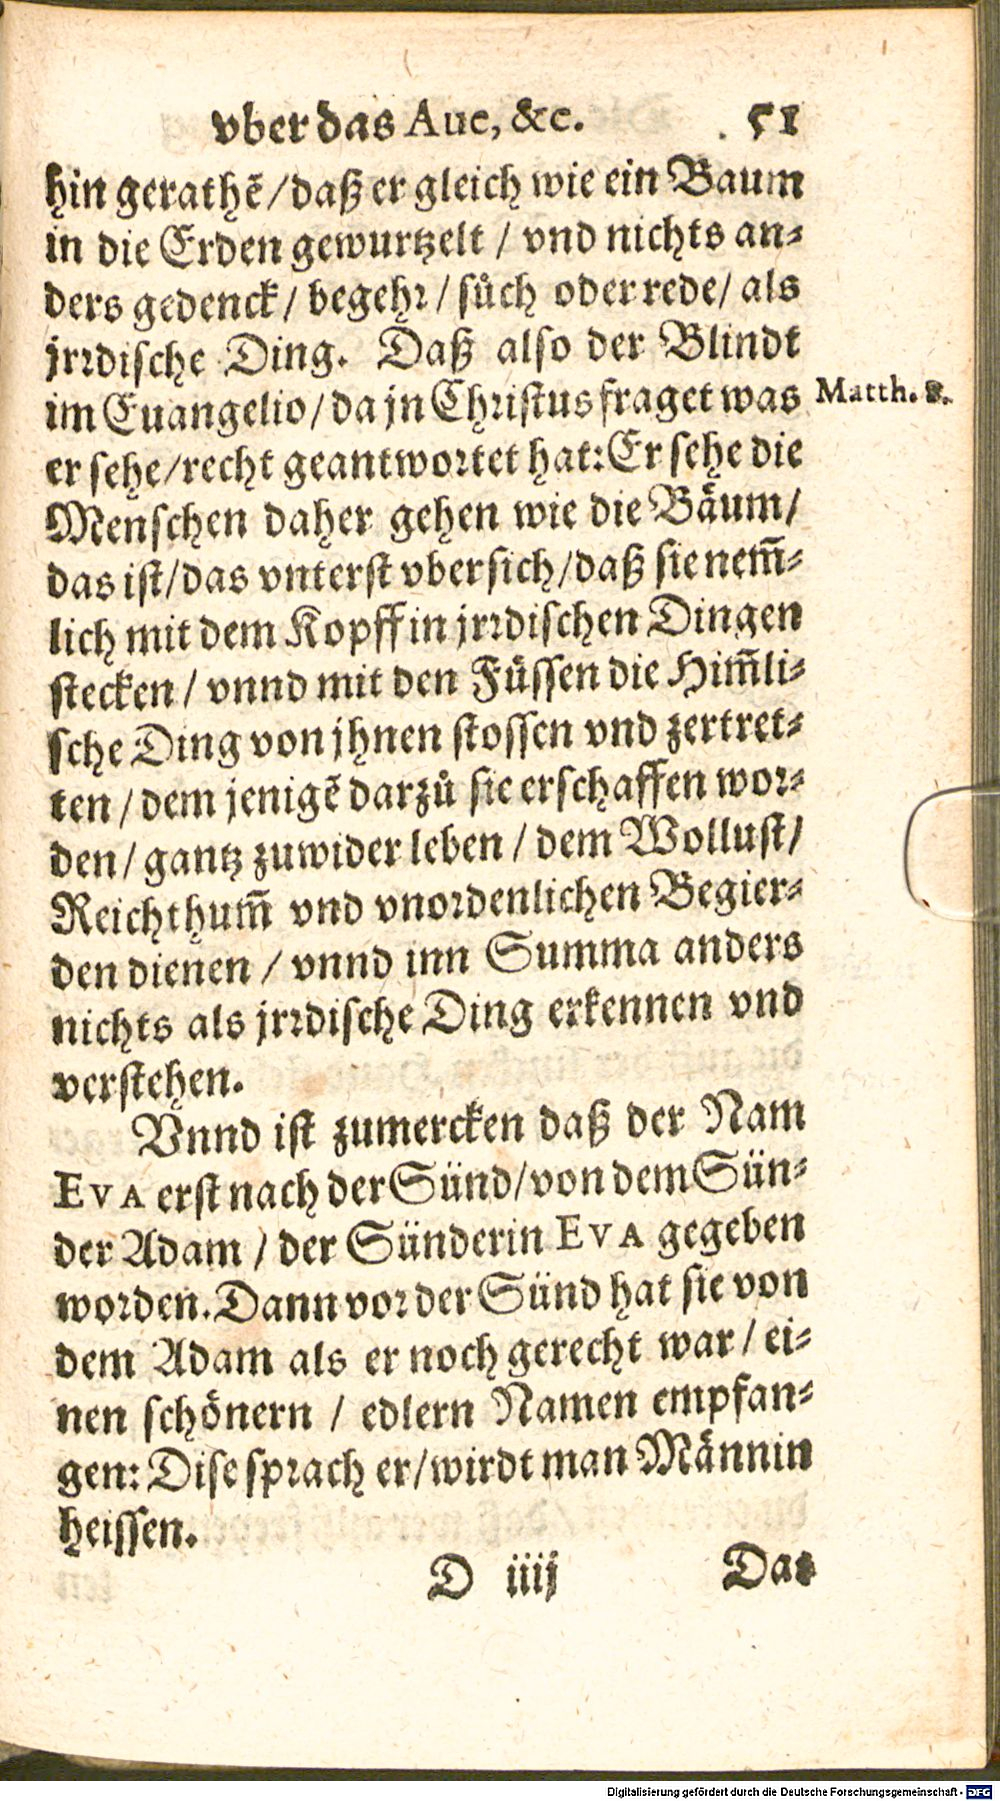 vber das Aue, &c. 51
hin gerathẽ/daß er gleich wie ein Baum
in die Erden gewurtzelt / vnd nichts an-
ders gedenck/ begehr/ sůch oder rede/ als
jrrdische Ding. Daß also der Blindt
im Euangelio/da jn Christus fraget was
Matth. 8.
er sehe/recht geantwortet hat: Er sehe die
Menschen daher gehen wie die Bäum/
das ist/das vnterst vbersich/daß sie nem̃-
lich mit dem Kopff in jrrdischen Dingen
stecken / vnnd mit den Füssen die Him̃li-
sche Ding von jhnen stossen vnd zertret-
ten / dem jenigẽ darzů sie erschaffen wor-
den/ gantz zuwider leben / dem Wollust/
Reichthum̃ vnd vnordenlichen Begier-
den dienen / vnnd inn Summa anders
nichts als jrrdische Ding erkennen vnd
verstehen.
Vnnd ist zumercken daß der Nam
EVA erst nach der Sünd/von dem Sün-
der Adam / der Sünderin EVA gegeben
worden. Dann vor der Sünd hat sie von
dem Adam als er noch gerecht war / ei-
nen schönern / edlern Namen empfan-
gen: Dise sprach er/wirdt man Männin
heissen.
D iiij Das
Digitalisierung gefördert durch die Deutsche Forschungsgemeinschaft - DFG